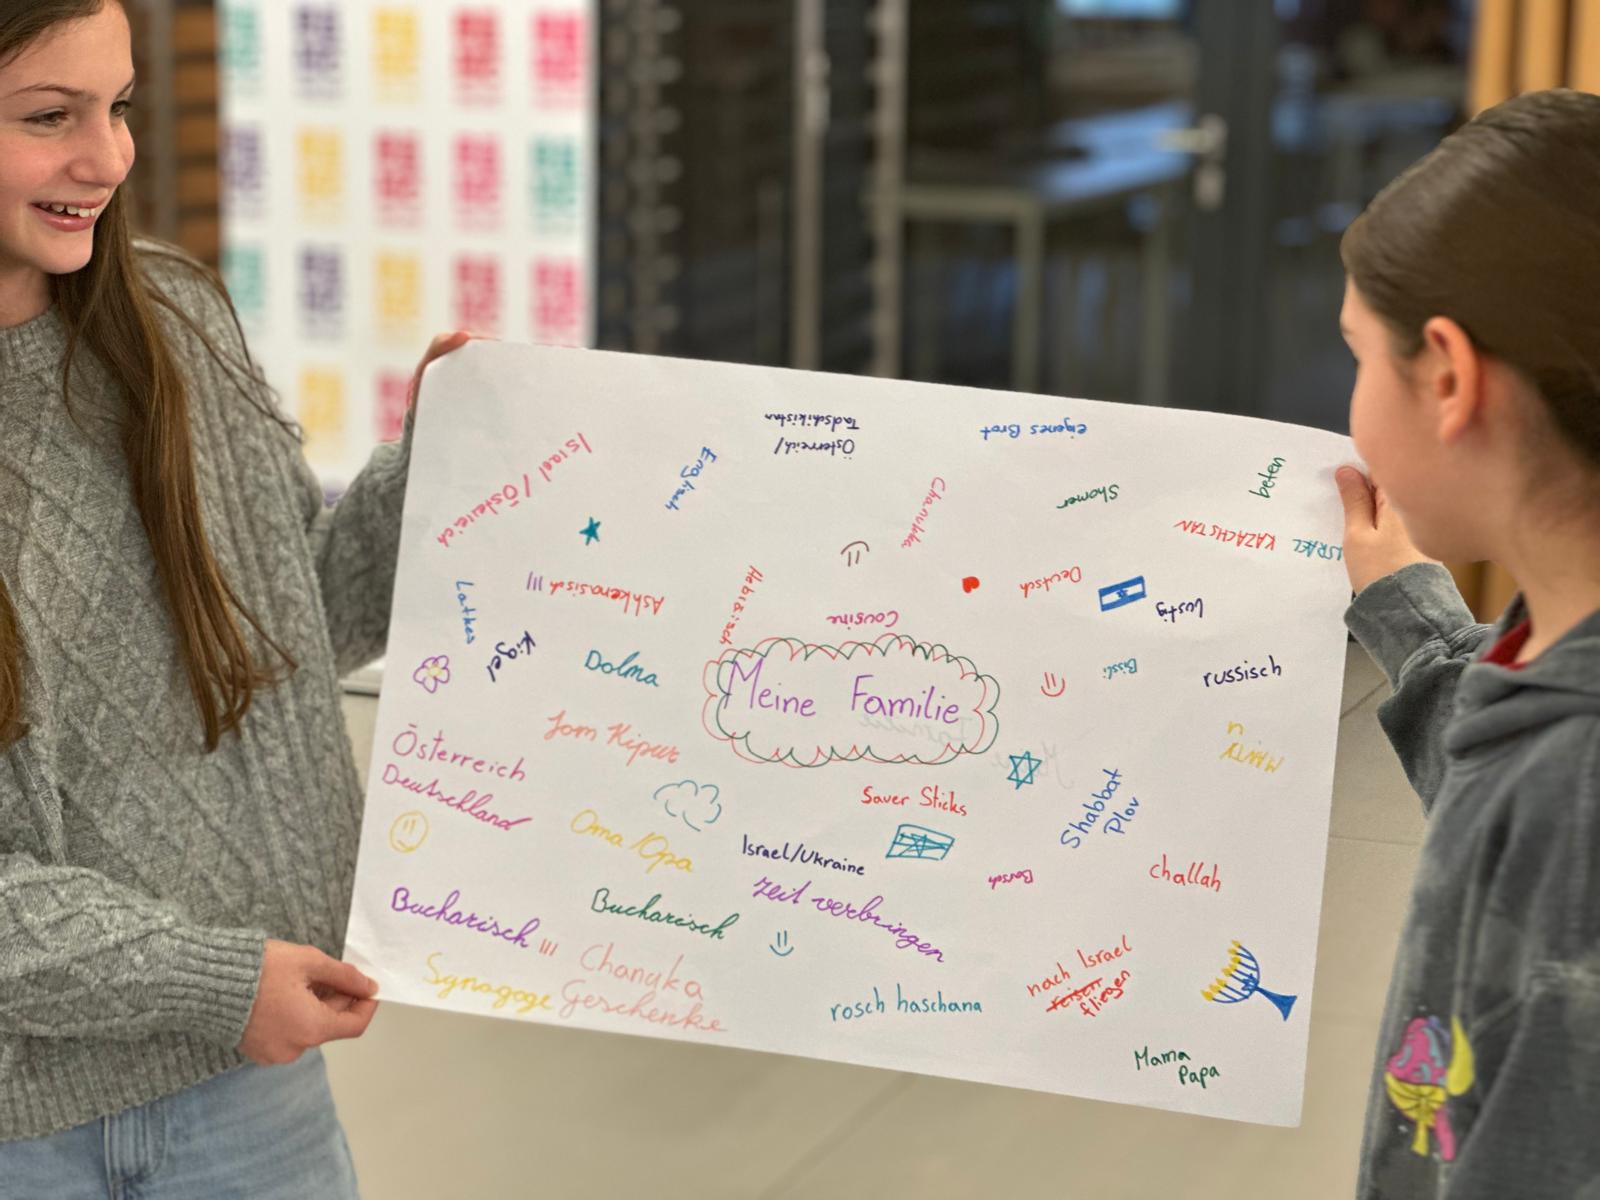 Österreich/
Tadschikistan
eigenes Brot
Israel / Östereich
Englisch
Chanukka
Shomer
beten
KAZACHSTAN
ISRAEL
Ashkenasisch !!!
Hebräisch
Deutsch
Cousine
Lustig
Latkes
Kigel
Dolma
Meine Familie
Bissli
russisch
Jom Kipur
MANTY
Österreich
Deutschland
Sauer Sticks
Shabbat
Plov
Oma/Opa
Israel/Ukraine
Borsch
challah
Zeit verbringen
Bucharisch !!!
Bucharisch
Chanuka
Geschenke
Synagoge
rosch haschana
nach Israel
reisen
fliegen
Mama
Papa